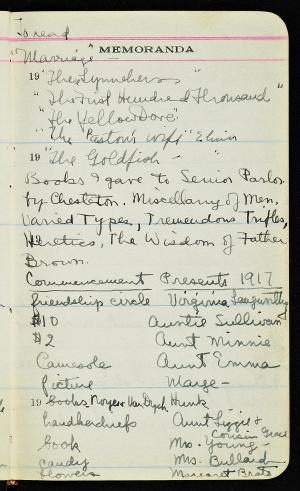 To read
"Marriage"
MEMORANDA
19 "The Lynnchers"
"The First Hundred Thousand"
"The Yellow Dove"
"The Pastor's Wife"
19 "The Goldfish -"
Books I gave to Senior Parlor
by Chesteton. Miscellany of Men,
Varied Types, Tremendous Trifles,
Heretics, The Wisdom of Father
Brown.
Commencement Presents 1917
friendship circle Virginia
$10 Auntie Sullivan
$2 Aunt Minnie
Camesole Aunt Emma
Picture Marge -
19 books Noyes & Van Dyck Hunk
handkerchiefs Aunt Lizzie &
Cousin Grace
book Mrs. Young -
candy Mrs. Bullard
flowers Margaret